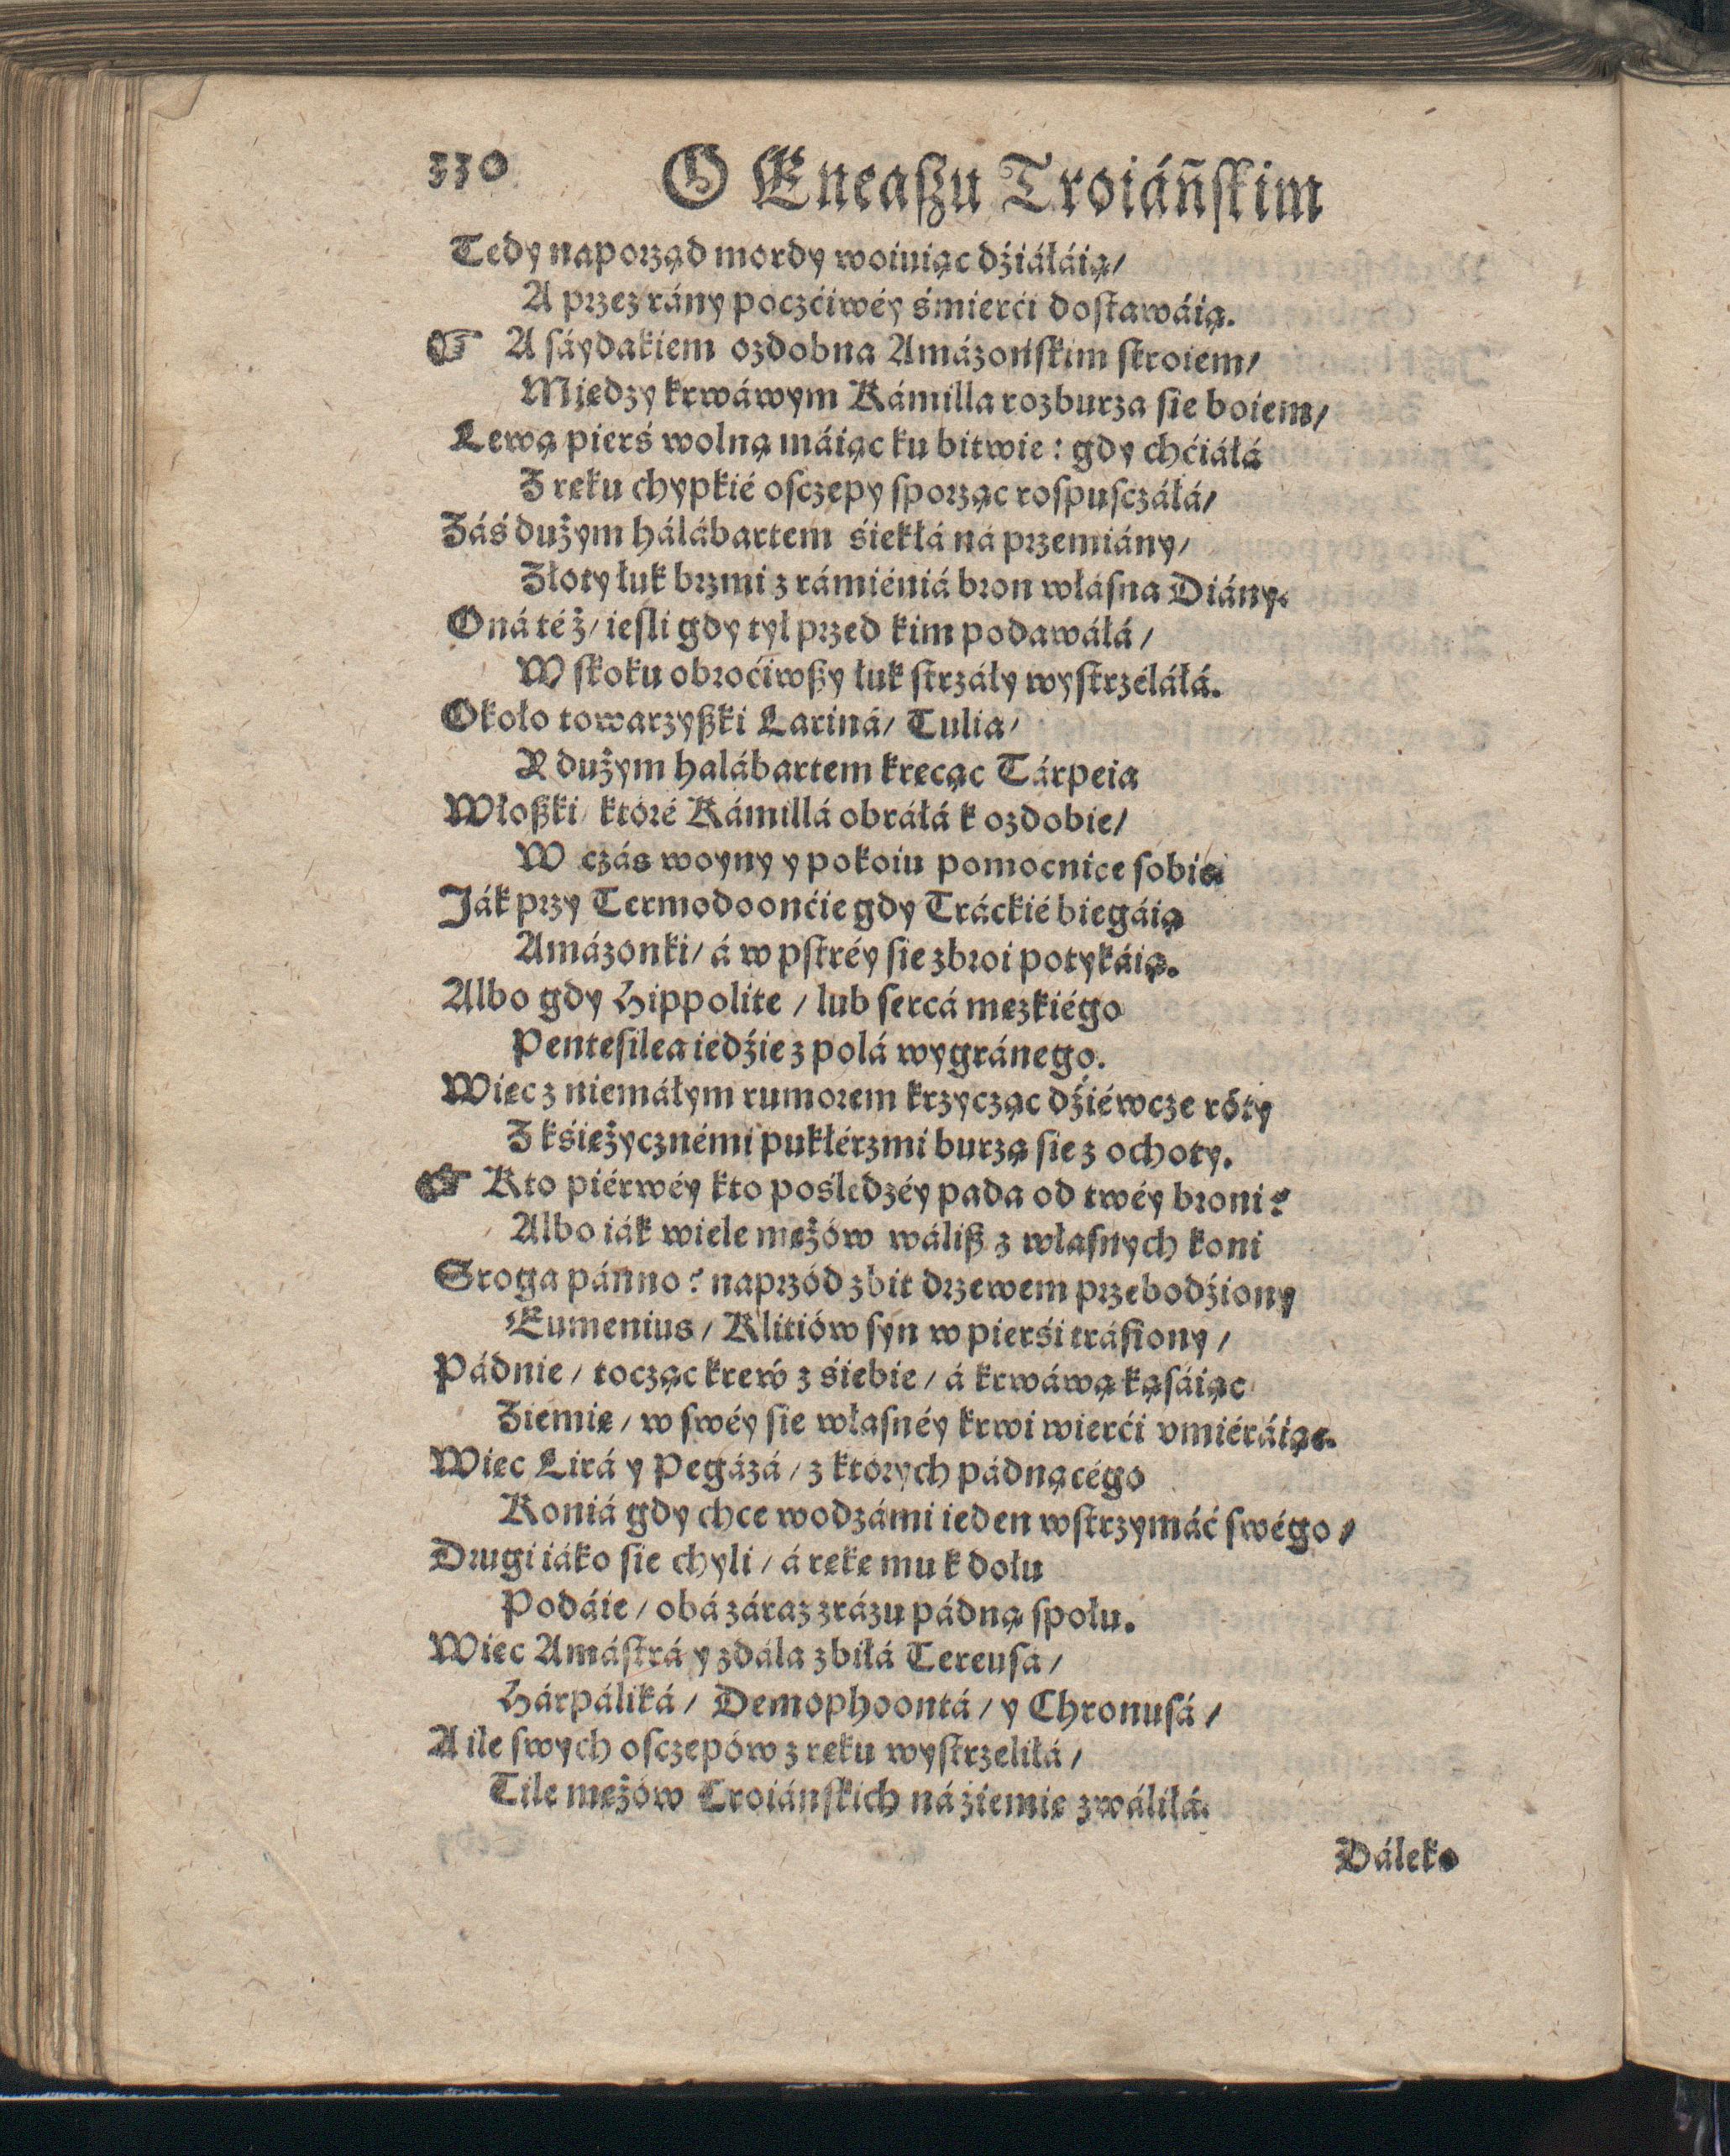 330 O Eneaſzu Troiáńſkim
Tedy naporząd mordy woiuiąc dźiáłáią/
A przez rány poczćiwéy śmierći doſtawáią.
☞ A ſáydakiem ozdobna Amázońſkim ſtroiem/
Między krwáwym Kámilla rozburza ſie boiem/
Lewą pierś wolną máiąc ku bitwie: gdy chćiáłá
Z ręku chypkié oſczepy ſporząc roſpuſczáłá/
Záś dużym hálábartem śiekłá ná przemiány/
Złoty łuk brzmi z rámiéniá bron właſna Diány.
Oná téż/ ieſli gdy tył przed kim podawáłá/
W ſkoku obroćiwſzy łuk ſtrzáły wyſtrzéláłá.
Około towarzyſzki Lariná/ Tulia/
Y dużym halábartem kręcąc Tárpeia
Włoſzki/ któré Kámillá obráłá k ozdobie/
W czás woyny y pokoiu pomocnice ſobie.
Ják przy Termodoonćie gdy Tráckié biegáią
Amázonki/ á w pſtréy ſie zbroi potykáią.
Albo gdy Hippolite/ lub ſercá męzkiégo
Penteſilea iedźie z polá wygránego.
Więc z niemáłym rumorem krzycząc dźiéwcze róty
Z kśiężycznémi pukłérzmi burzą ſie z ochoty.
☞ Kto piérwéy kto poślédzéy pada od twéy broni?
Albo iák wiele mężów wáliſz z właſnych koni
Sroga pánno? naprzód zbit drzewem przebodźiony
Eumenius/ Klitiów ſyn w pierśi tráfiony/
Pádnie/ tocząc krew z śiebie/ á krwáwą kąsáiąc
Ziemię/ w swéy ſie właſnéy krwi wierći vmiéráiąc.
Więc Lirá y Pegázá/ z których pádnącégo
Koniá gdy chce wodzámi ieden wſtrzymáć swégo/
Drugi iáko ſie chyli/ á rękę mu k dołu
Podáie/ obá záraz zrázu pádną ſpołu.
Więc Amáſtrá y zdála zbiłá Tereuſá/
Hárpáliká/ Demophoontá/ y Chronuſá/
A ile swych oſczepów z ręku wyſtrzeliłá/
Tile mężów Troiánſkich ná źiemię zwáliłá.
Dáleko